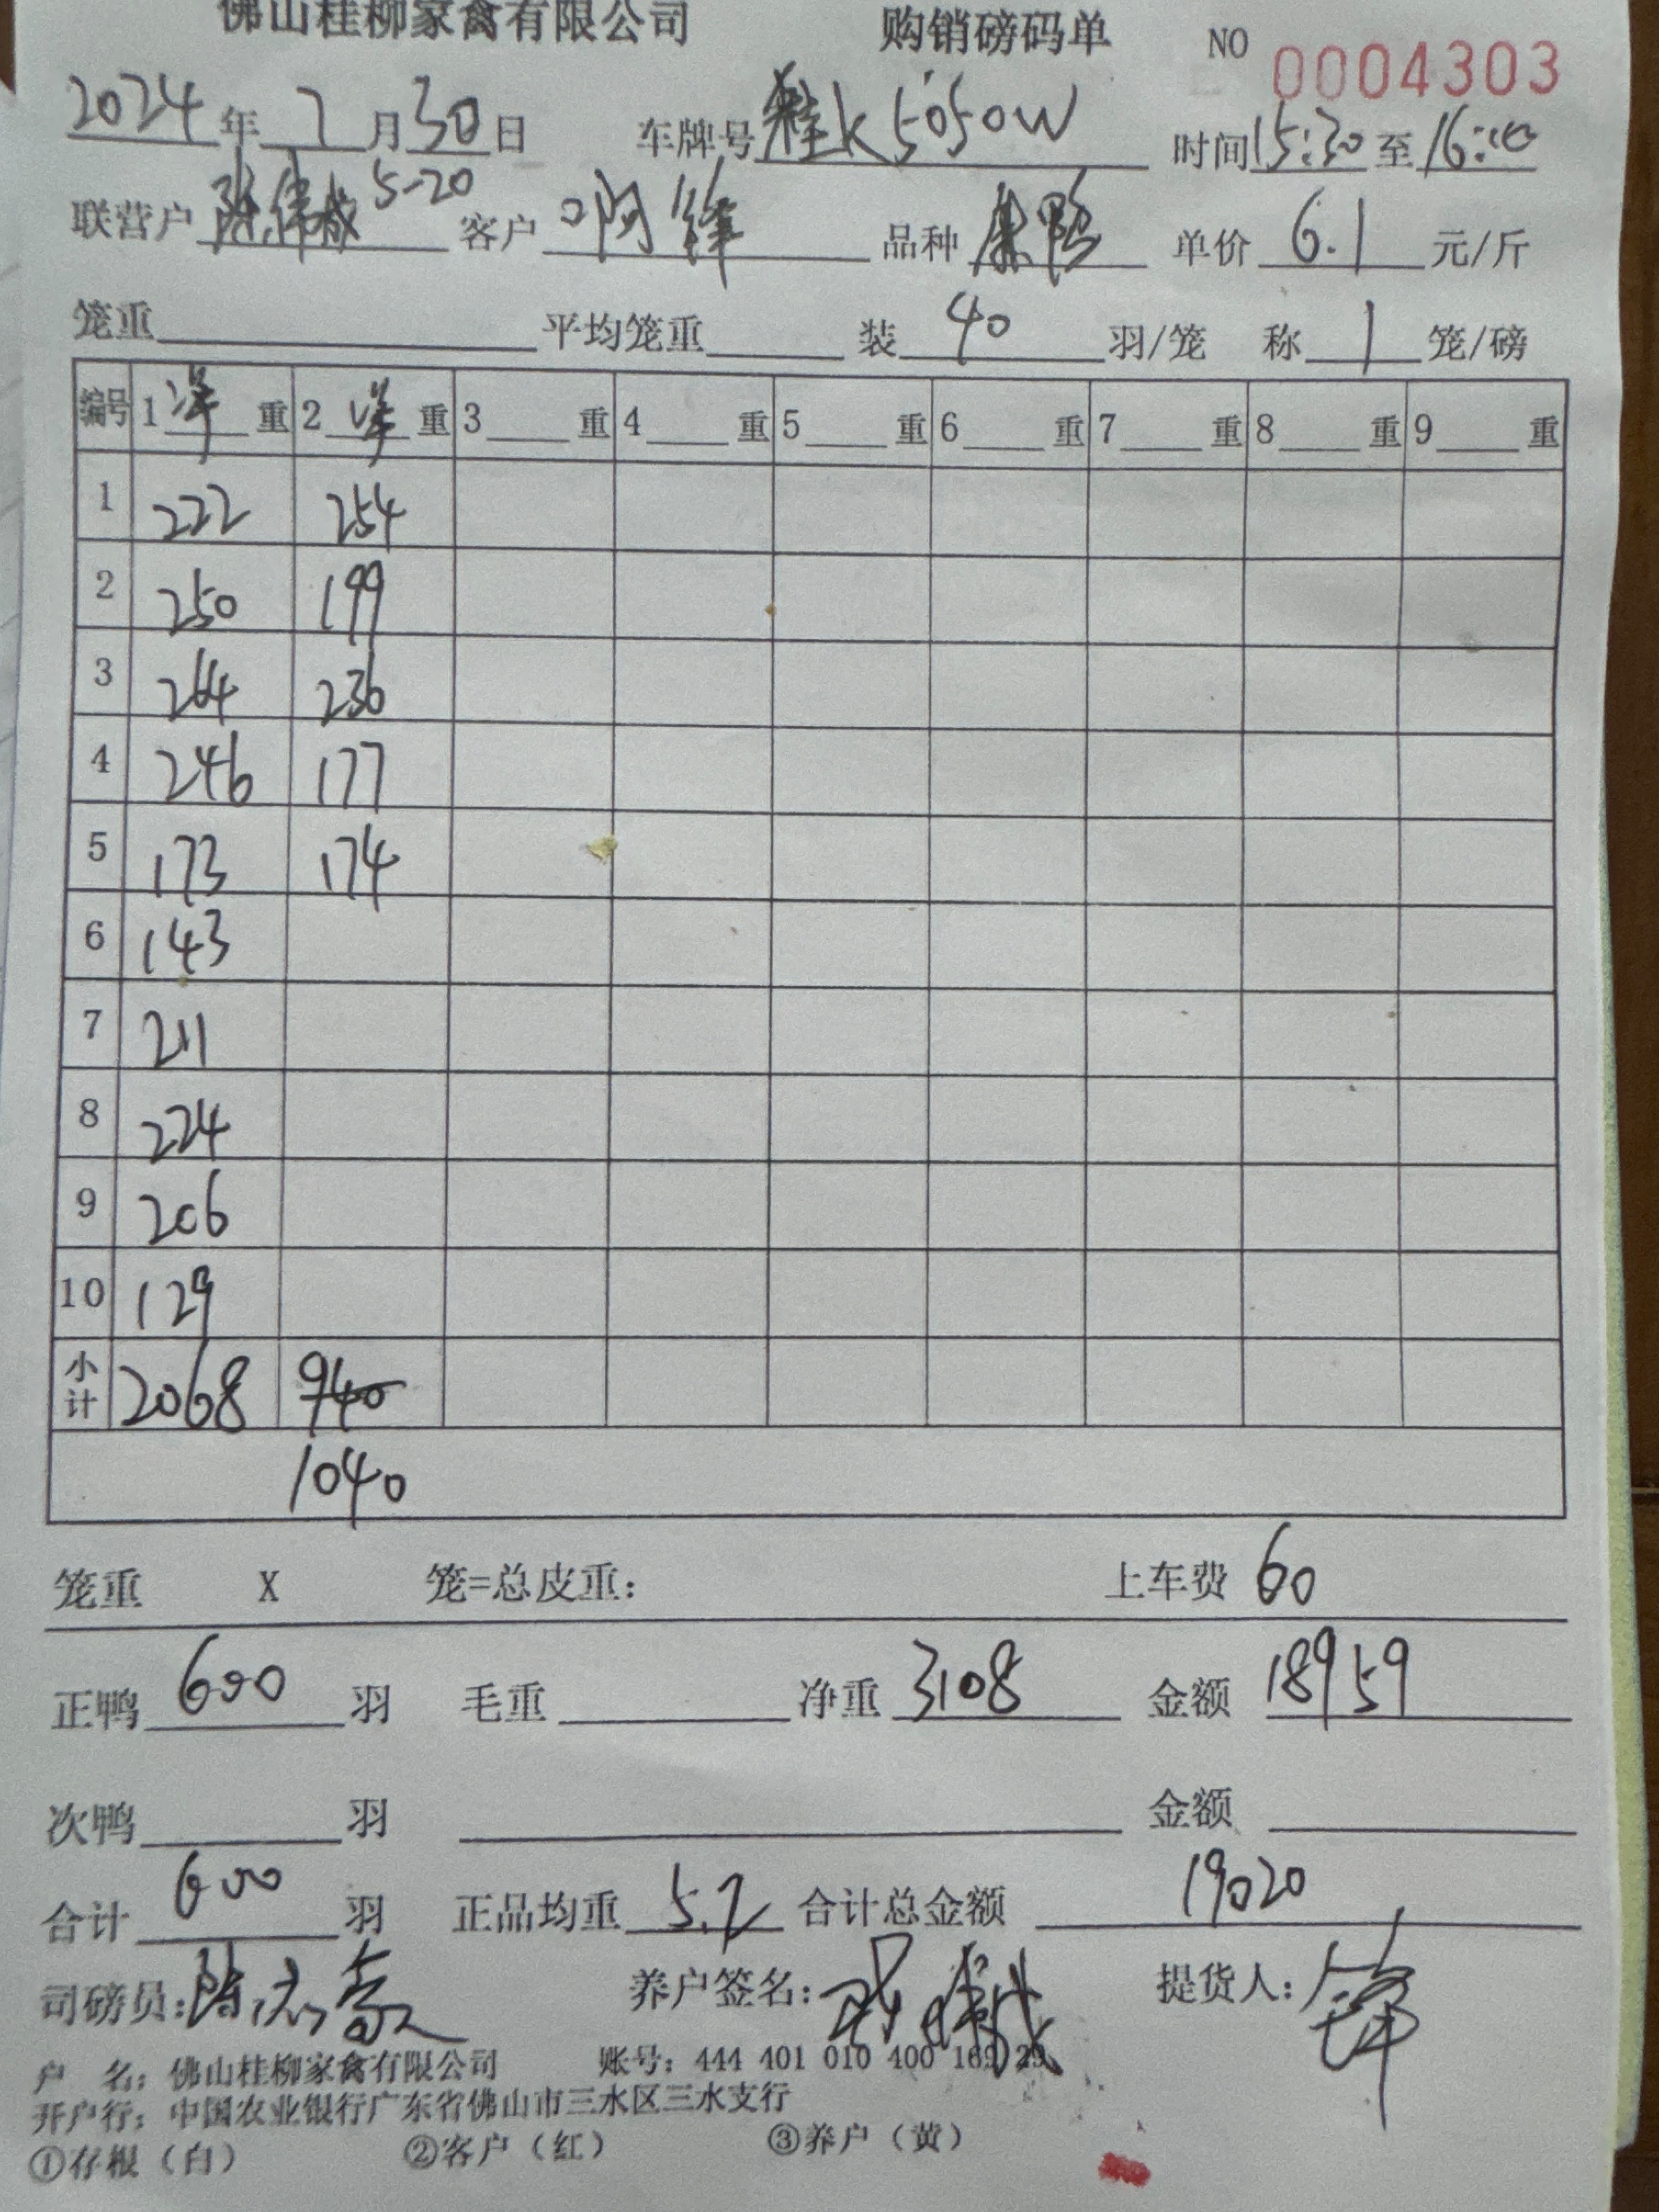 佛山桂柳家禽有限公司 购销磅码单 NO 0004303
2024年7月30日 车牌号 桂K5050W 时间15:30至16:00
联营户 陈伟成 5-20 客户 阿锋 品种 康鸭 单价 6.1 元/斤
笼重 平均笼重 装 40 羽/笼 称 1 笼/磅
编号 1 净 重 2 净 重 3 重 4 重 5 重 6 重 7 重 8 重 9 重
1 222 254
2 250 199
3 264 236
4 246 177
5 173 174
6 143
7 211
8 224
9 206
10 129
小计 2068 940
1040
笼重 X 笼=总皮重: 上车费 60
正鸭 600 羽 毛重 净重 3108 金额 18959
次鸭 羽 金额
合计 600 羽 正品均重 5.2 合计总金额 19020
司磅员: 陈志豪 养户签名: 提货人: 锋
户 名: 佛山桂柳家禽有限公司 账号: 444 401 010 400 169
开户行: 中国农业银行广东省佛山市三水区三水支行
①存根（白） ②客户（红） ③养户（黄）